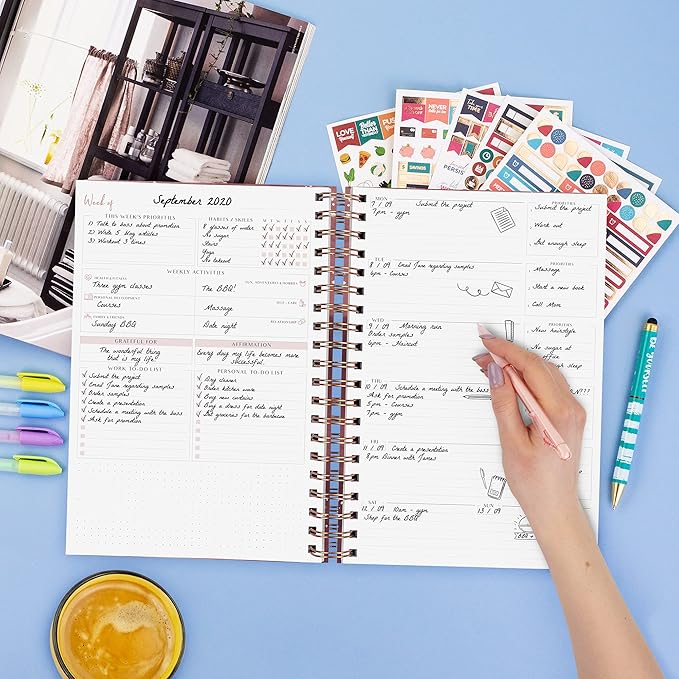 Week of
September 2020
THIS WEEK'S PRIORITIES
1) Talk to boss about promotion
2) Write 5 blog articles
3) Workout 3 times
HABITS / SKILLS
M T W T F S S
8 glasses of water
No sugar
Stairs
Yoga
No takeout
WEEKLY ACTIVITIES
HEALTH/FITNESS
Three gym classes
The BBQ!
FUN, ADVENTURES & HOBBIES
PERSONAL DEVELOPMENT
Courses
Massage
SELF - CARE
FAMILY & FRIENDS
Sunday BBQ
Date night
RELATIONSHIP
GRATEFUL FOR
The wonderful thing
that is my life!
AFFIRMATION
Every day my life becomes more
successful.
WORK TO-DO LIST
Submit the project
Email Jane regarding samples
Order samples
Create a presentation
Schedule a meeting with the boss
Ask for promotion
PERSONAL TO-DO LIST
Dry cleaner
Order kitchen ware
Buy new curtains
Buy a dress for date night
Get groceries for the barbecue
LOVE
Better
THAN
NEVER
SAVINGS
TIME
PERSIS
MON
7 / 09 Submit the project
7pm - gym
PRIORITIES
Submit the project
Work out
Get enough sleep
TUE
8 / 09 Email Jane regarding samples
6pm - Courses
PRIORITIES
Massage
Start a new book
Call Mom
WED
9 / 09 Morning run
Order samples
6pm - Haircut
PRIORITIES
New hairstyle
No sugar at
office
THU
10 / 09 Schedule a meeting with the boss
Ask for promotion
5pm - Courses
7pm - gym
N???
FRI
11 / 09 Create a presentation
8pm Dinner with James
SAT
12 / 09 10am - gym
Shop for the BBQ
SUN
13 / 09
BBQ
BE YOURSELF